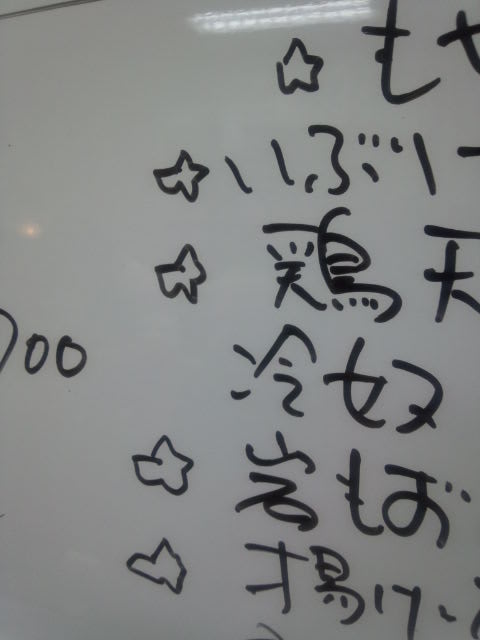 ☆ もや
☆ いぶりー
☆ 鶏天
00
冷奴
☆ 岩もず
☆ 揚げ